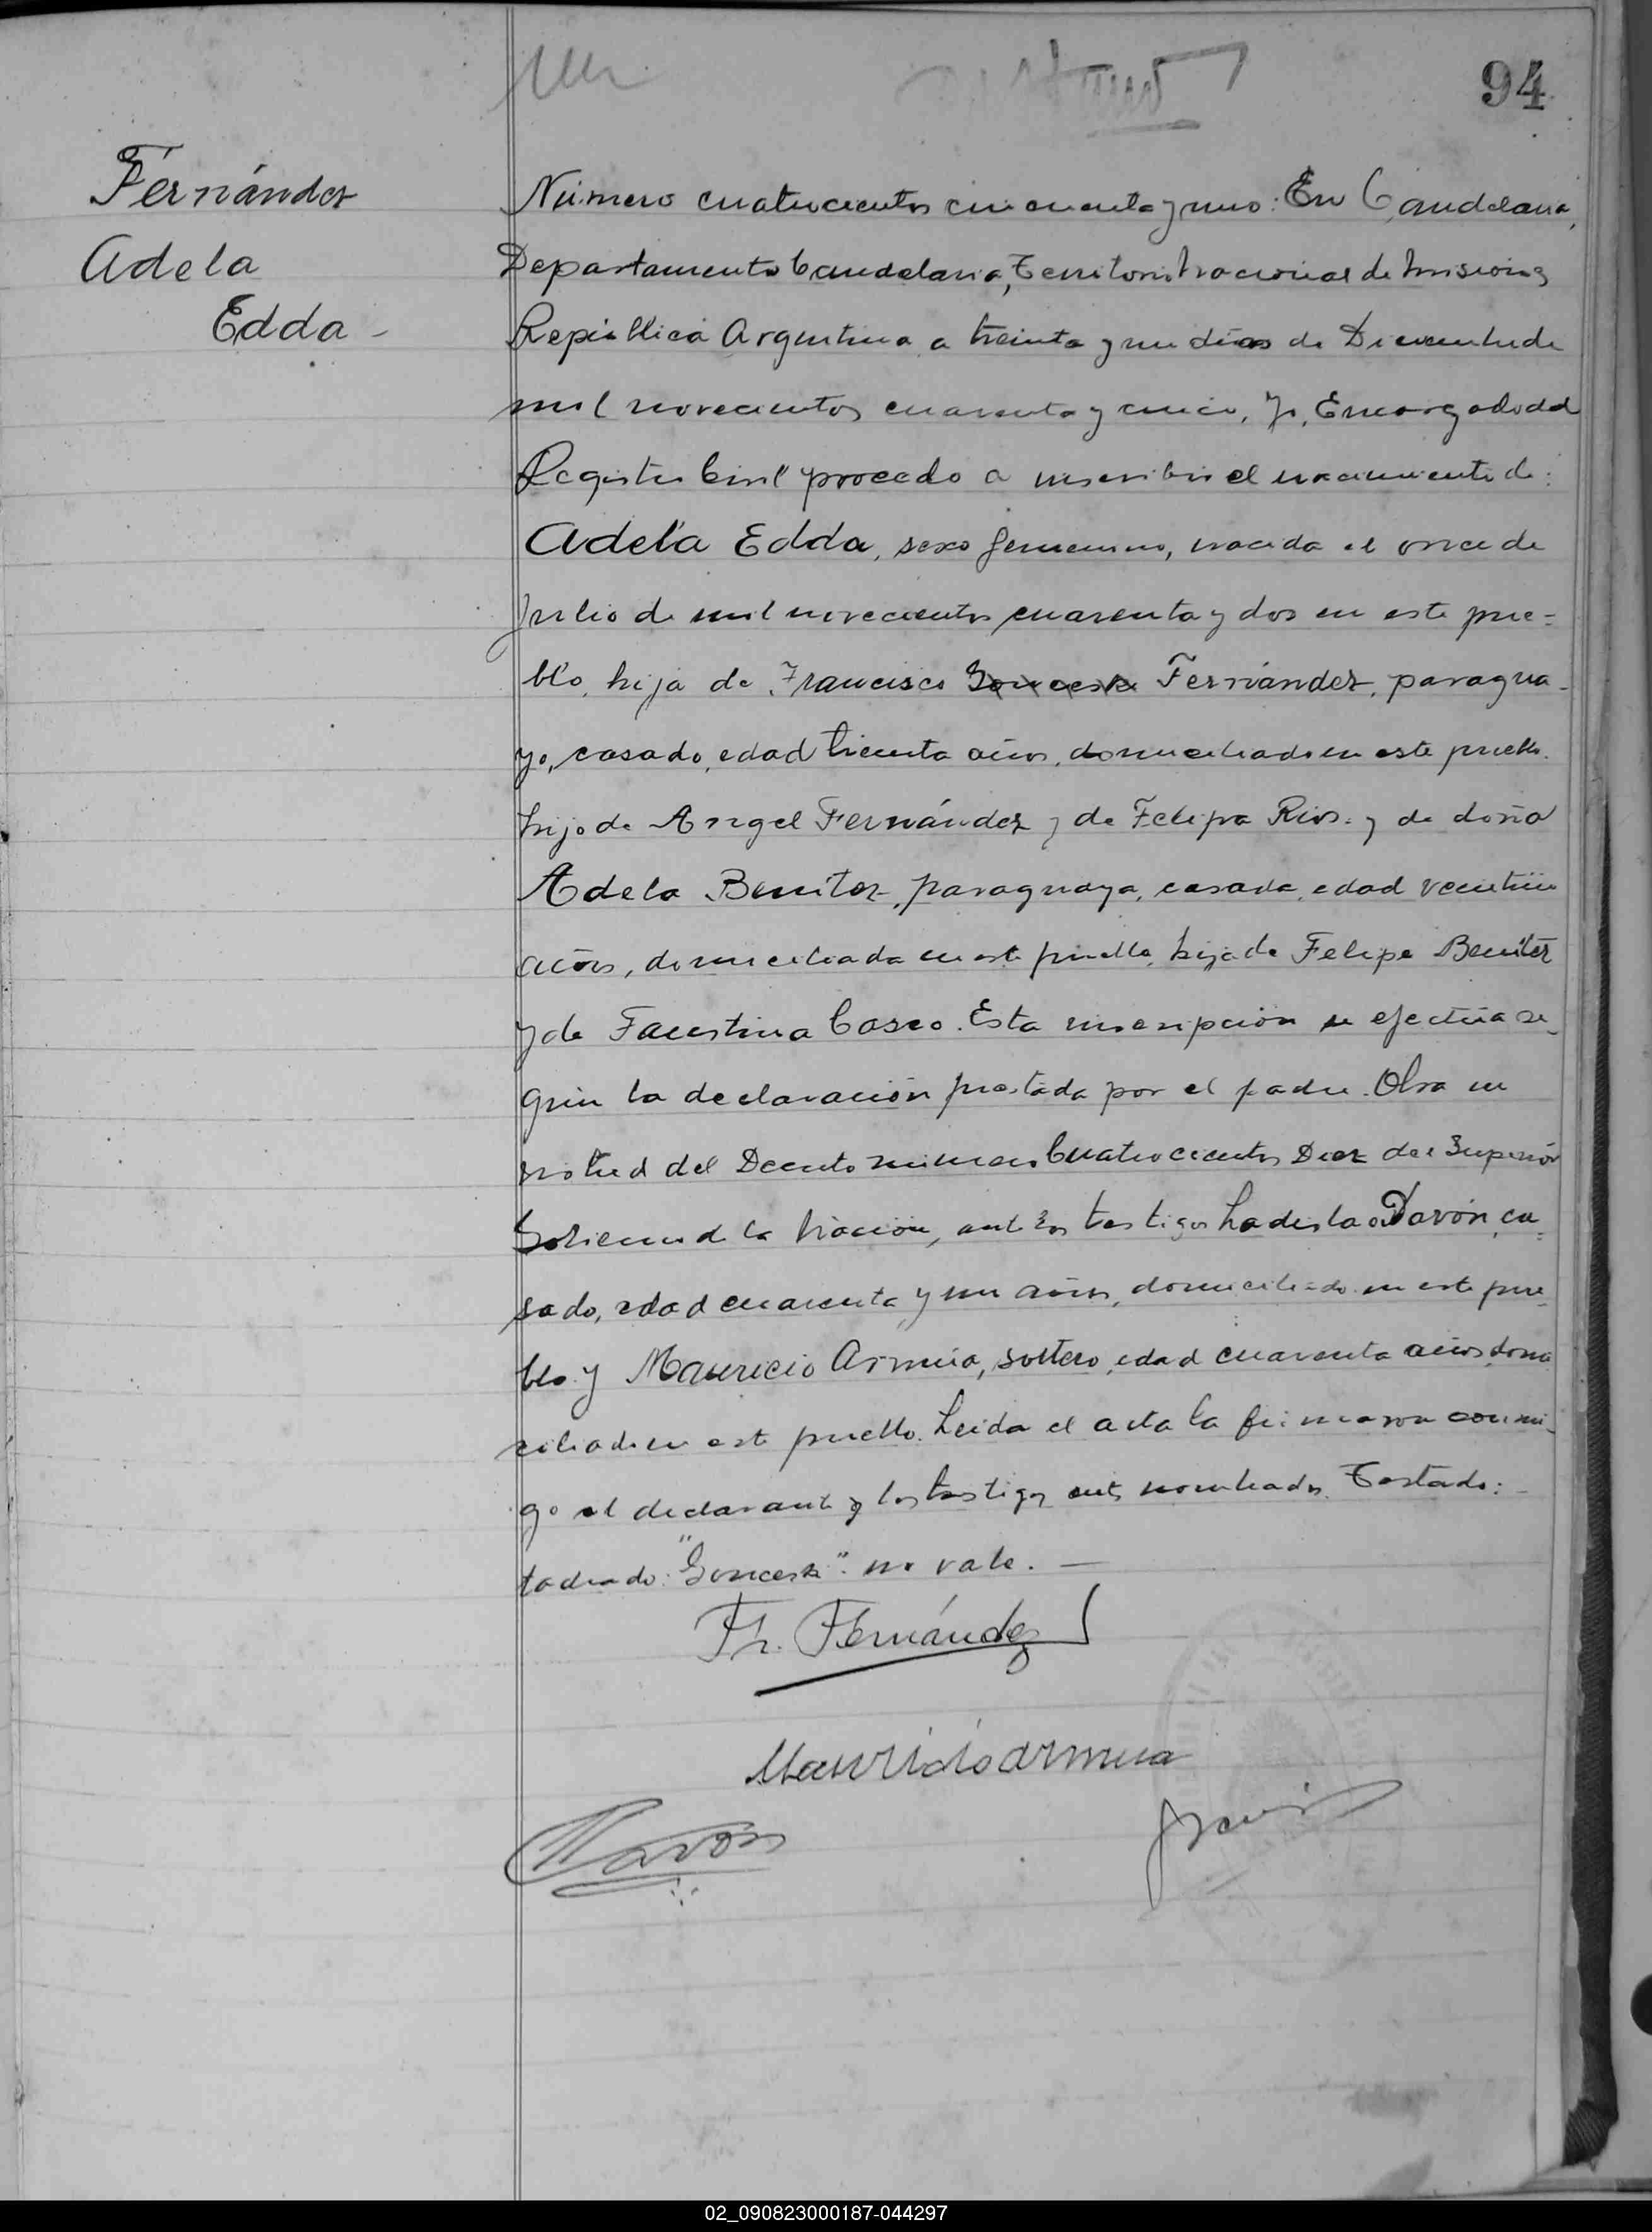 94
Fernández
Adela
Edda -
Número cuatrocientos cincuenta y uno: En Candelaria,
Departamento Candelaria, Territorio Nacional de Misiones
República Argentina a treinta y un días de Diciembre de
mil novecientos cuarenta y cinco, Yo, Encargado del
Registro Civil procedo a inscribir el nacimiento de:
Adela Edda, sexo femenino, nacida el once de
Julio de mil novecientos cuarenta y dos en este pue=
blo, hija de Francisco Fernández, paragua-
yo, casado, edad treinta años, domiciliado en este pueblo.
hijo de Angel Fernández y de Felipa Rios. y de doña
Adela Benitez, paraguaya, casada, edad
años, domiciliada en este pueblo, hija de Felipe Benitez
y de Faustina Casco. Esta inscripción se efectúa se-
gún la declaración prestada por el padre. Obra en
virtud del Decreto número Cuatrocientos Diez del Superior
Gobierno de la Nación, ante los testigos Ladislao Pavón, ca=
sado, edad cuarenta y un años, domiciliado en este pue
blo y Mauricio Armúa, soltero, edad cuarenta años, domi
ciliado en este pueblo. Leída el acta la firmaron conmi-
go el declarante y los testigos antes nombrados. Testado:-
tachado: " " no vale. —
Fr. Fernández
Mauricio armua
Pavón
02_090823000187-044297